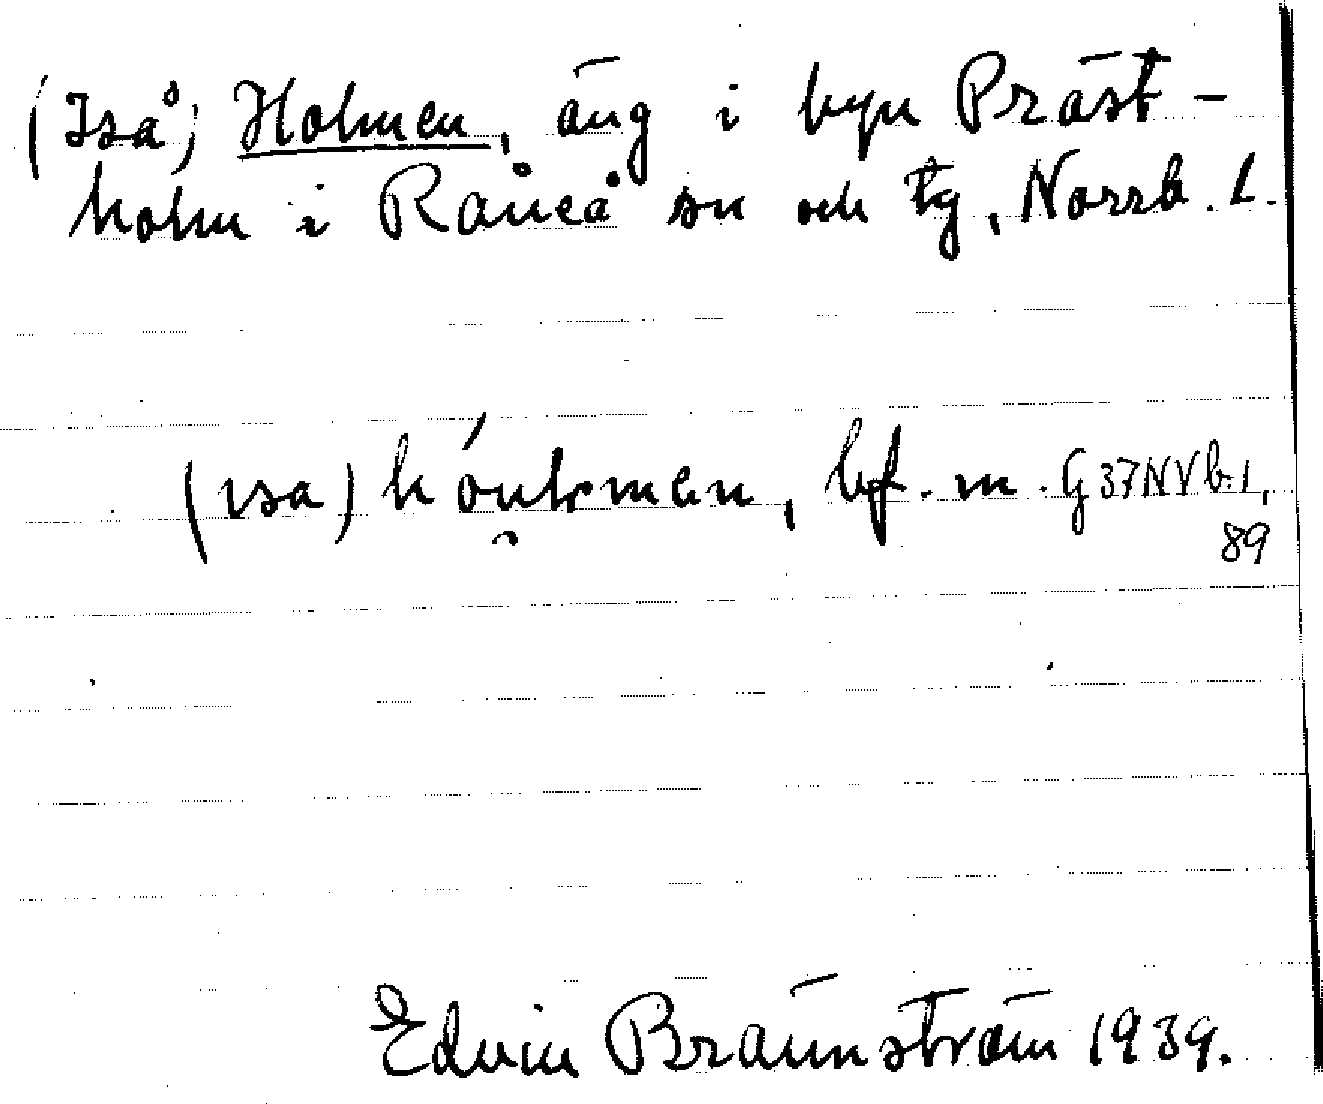 (Iså) Holmen, äng i byn Präst-
holm i Råneå sn och tg, Norrb. L.
(ɪsa) bf. m. G37NVb.1,
89
Edvin Brännström 1939.